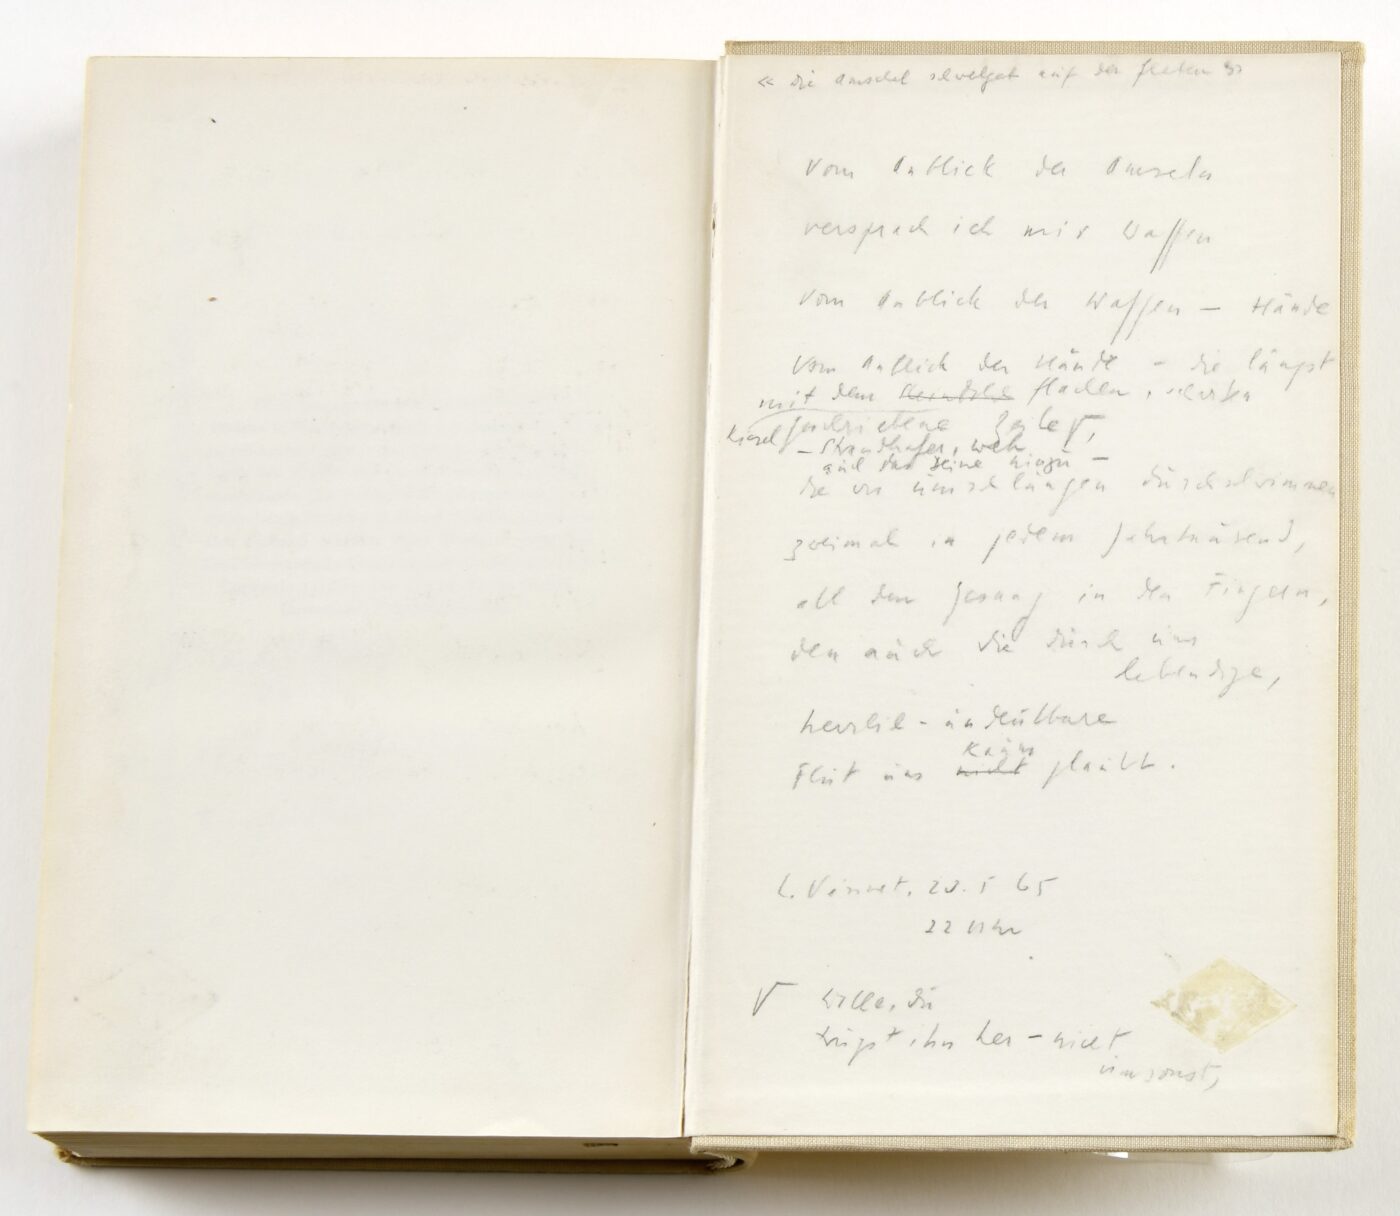 « die Amsel schwelget auf den »
Vom Anblick der Amseln
versprach ich mir Waffen
Vom Anblick der Waffen – Hände
Vom Anblick der Hände – die längst
mit dem flachen, scharfen
Kiesel geschriebene Zeile √,
– Strandhafer, weh
auch das Deine hinzu –
die wir umschlungen durchschwimmen
zweimal in jedem Jahrtausend,
all den Gesang in den Fingern,
den auch die durch uns
lebendige,
herrlich-undeutbare
kaum
Flut uns nicht glaubt.
L. Vésinet. 20. 5 65
22 Uhr
√ Welle, du
trugst ihn her – nicht
umsonst,